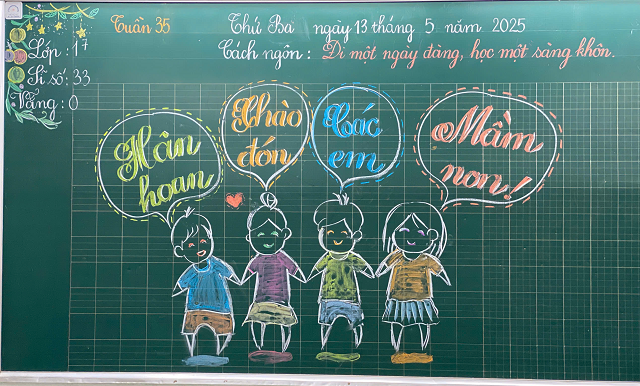 Tuần 35
Thứ Ba ngày 13 tháng 5 năm 2025
Cách ngôn : Đi một ngày đàng, học một sàng khôn.
Lớp : 1⁷
Sĩ số : 33
Vắng : 0
Hân
hoan
Chào
đón
Các
em
Mầm
non!